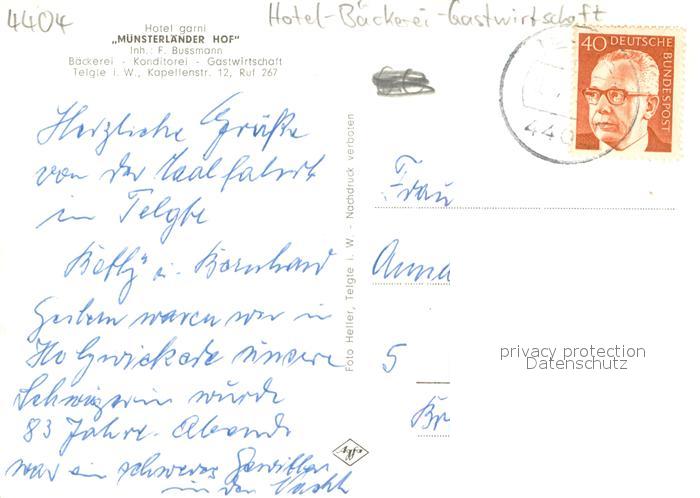 4404
Hotel-Bäckerei-Gastwirtschaft
Hotel garni
„MÜNSTERLÄNDER HOF"
Inh.: F. Bussmann
Bäckerei - Konditorei - Gastwirtschaft
Telgte i. W., Kapellenstr. 12, Ruf 267
40 DEUTSCHE BUNDESPOST
440
Herzliche Grüße
von der Wallfahrt
in Telgte
u. Bernhard
Gestern waren wir in
Holzwickede unsere
Schwägerin wurde
83 Jahre. Abends
war ein schweres Gewitter
in der Nacht
Foto Heller, Telgte i. W. - Nachdruck verboten
Agfa
Frau
Anna
5
privacy protection
Datenschutz